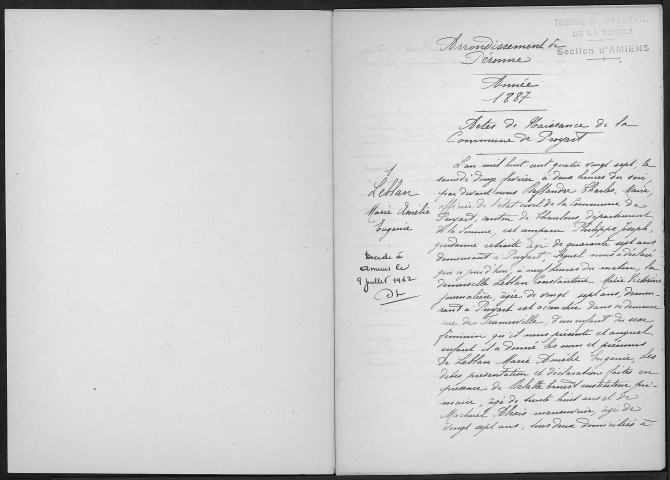 TRIBUNAL DE 1ère INSTANCE
DE LA SOMME
Section d'AMIENS
Arrondissement de
Péronne
Année
1887
Actes de Naissance de la
Commune de Proyart
1
Leblan
Marie Amélie
Eugénie
Décédée à
Amiens le
9 juillet 1962
L'an mil huit cent quatre vingt sept, le
samedi douze février à deux heures du soir,
par devant nous Charles, Marie
officier de l'état civil de la Commune de
Proyart, canton de Chaulnes, département
de la Somme, est comparu Philippe Joseph,
gendarme retraité âgé de quarante sept ans
demeurant à Proyart, lequel nous a déclaré
que ce jourd'hui, à neuf heures du matin, la
demoiselle Leblan Constantine Marie Victorine
journalière, âgée de vingt sept ans, demeu-
rant à Proyart est accouchée dans sa demeure
rue de Framerville, d'un enfant du sexe
féminin qu'il nous présente et auquel
enfant il a donné les nom et prénoms
de Leblan Marie Amélie Eugénie, Les
dites présentation et déclaration faites en
présence de Ernest instituteur pri-
maire, âgé de trente huit ans et de
Machuel Alexis manouvrier, âgé de
vingt sept ans, tous deux domiciliés à